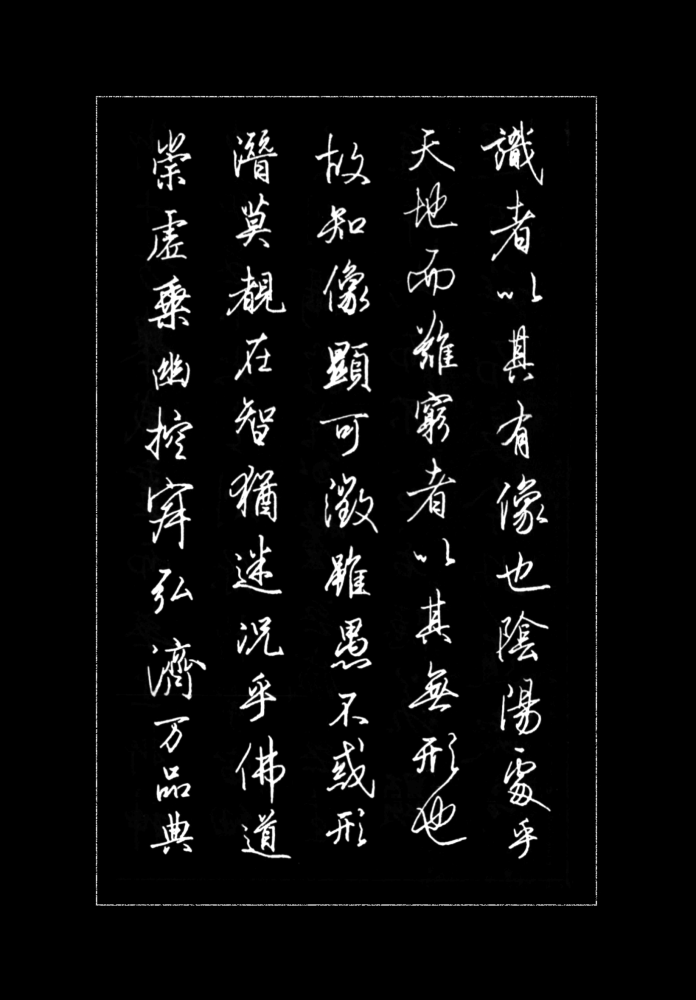 識者以其有像也陰陽處乎
天地而難窮者以其無形也
故知像顯可徵雖愚不惑形
潛莫覩在智猶迷況乎佛道
崇虛乗幽控寂弘濟万品典